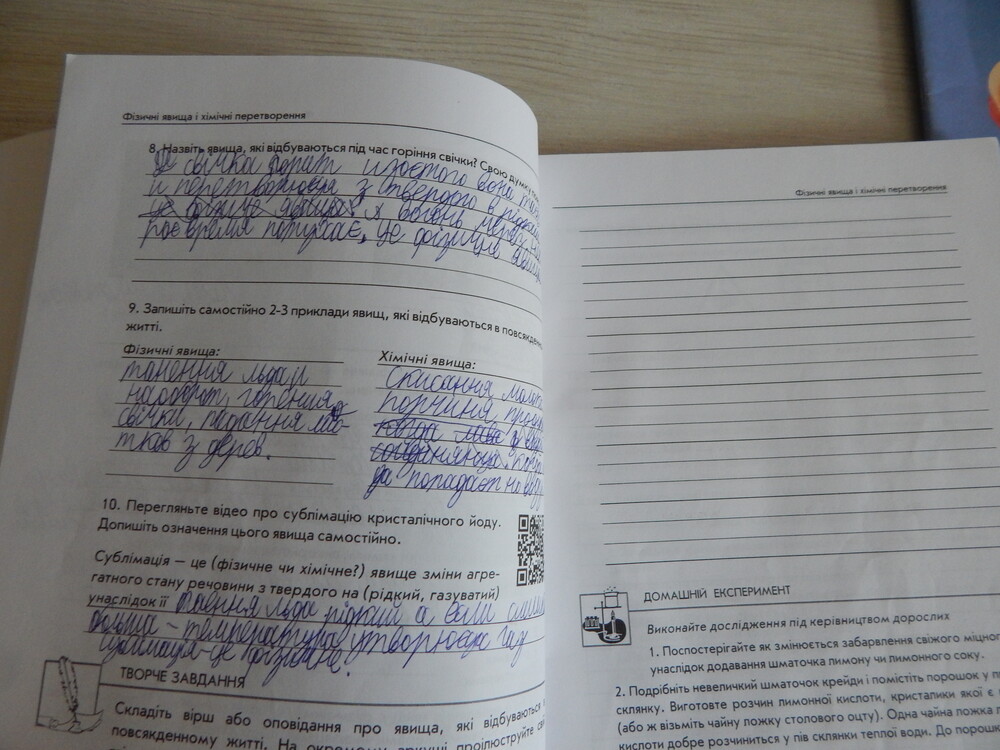 Фізичні явища і хімічні перетворення
8. Назвіть явища, які відбуваються під час горіння свічки? Свою думку
свічка горит и после того вона
и перетворюєця з твердого в рідкий
це фізичне явище
роє время потухає, це фізичне явище
9. Запишіть самостійно 2-3 приклади явищ, які відбуваються в повсякденному
житті.
Фізичні явища:
танення льда и
наоборот, горения
свічки, падання лис-
тков з дерев.
Хімічні явища:
Скисання молока
порчиня проду
когда лава в
соединяюця. Ког
да попадает на
10. Перегляньте відео про сублімацію кристалічного йоду.
Допишіть означення цього явища самостійно.
Сублімація – це (фізичне чи хімічне?) явище зміни агре-
гатного стану речовини з твердого на (рідкий, газуватий)
унаслідок її танення льда рідкий а если
больша – температура утворюєця газ
сублімація – це фізичне.
ТВОРЧЕ ЗАВДАННЯ
Складіть вірш або оповідання про явища, які відбуваються в
повсякденному житті. На окремому аркуші проілюструйте
Фізичні явища і хімічні перетворення
ДОМАШНІЙ ЕКСПЕРИМЕНТ
Виконайте дослідження під керівництвом дорослих
1. Поспостерігайте як змінюється забарвлення свіжого міцног
унаслідок додавання шматочка лимону чи лимонного соку.
2. Подрібніть невеличкий шматочок крейди і помістіть порошок у п
склянку. Виготовте розчин лимонної кислоти, кристалики якої є
(або ж візьміть чайну ложку столового оцту). Одна чайна ложка л
кислоти добре розчиниться у пів склянки теплої води. До порош